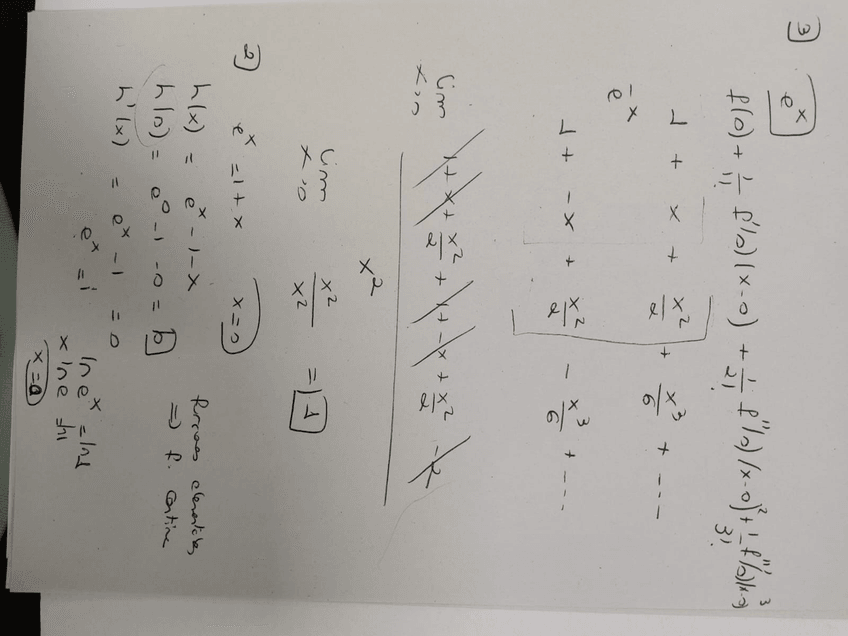 3) e^x
f(0) + 1/1! f'(0)(x-0) + 1/2! f''(0)(x-0)^2 + 1/3! f'''(0)(x-0)^3
1 + x + x^2/2 + x^3/6 + ---
e^-x
1 + -x + x^2/2 - x^3/6 + ---
lim x→0 1 + x + x^2/2 + 1 + -x + x^2/2 - 2
x^2
lim x→0 x^2/x^2 = 1
2) e^x = 1 + x x=0
h(x) = e^x - 1 - x
h(0) = e^0 - 1 - 0 = 0 => f.
h'(x) = e^x - 1 = 0
e^x = 1
ln e^x = ln 1
x ln e = ln 1
x = 0